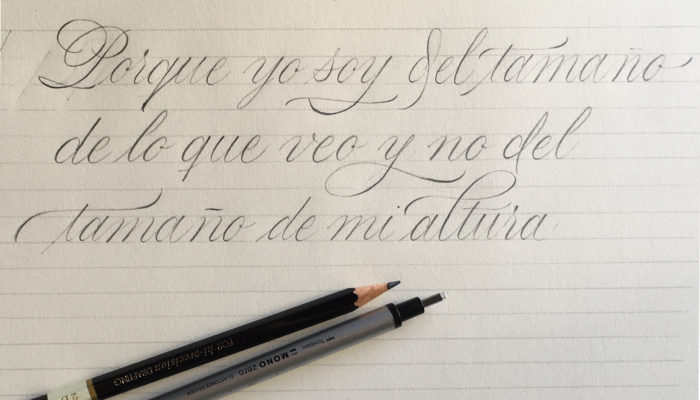 Porque yo soy del tamaño
de lo que veo y no del
tamaño de mi altura
FOR hi-precision DRAFTING
Tombow
MONO zero